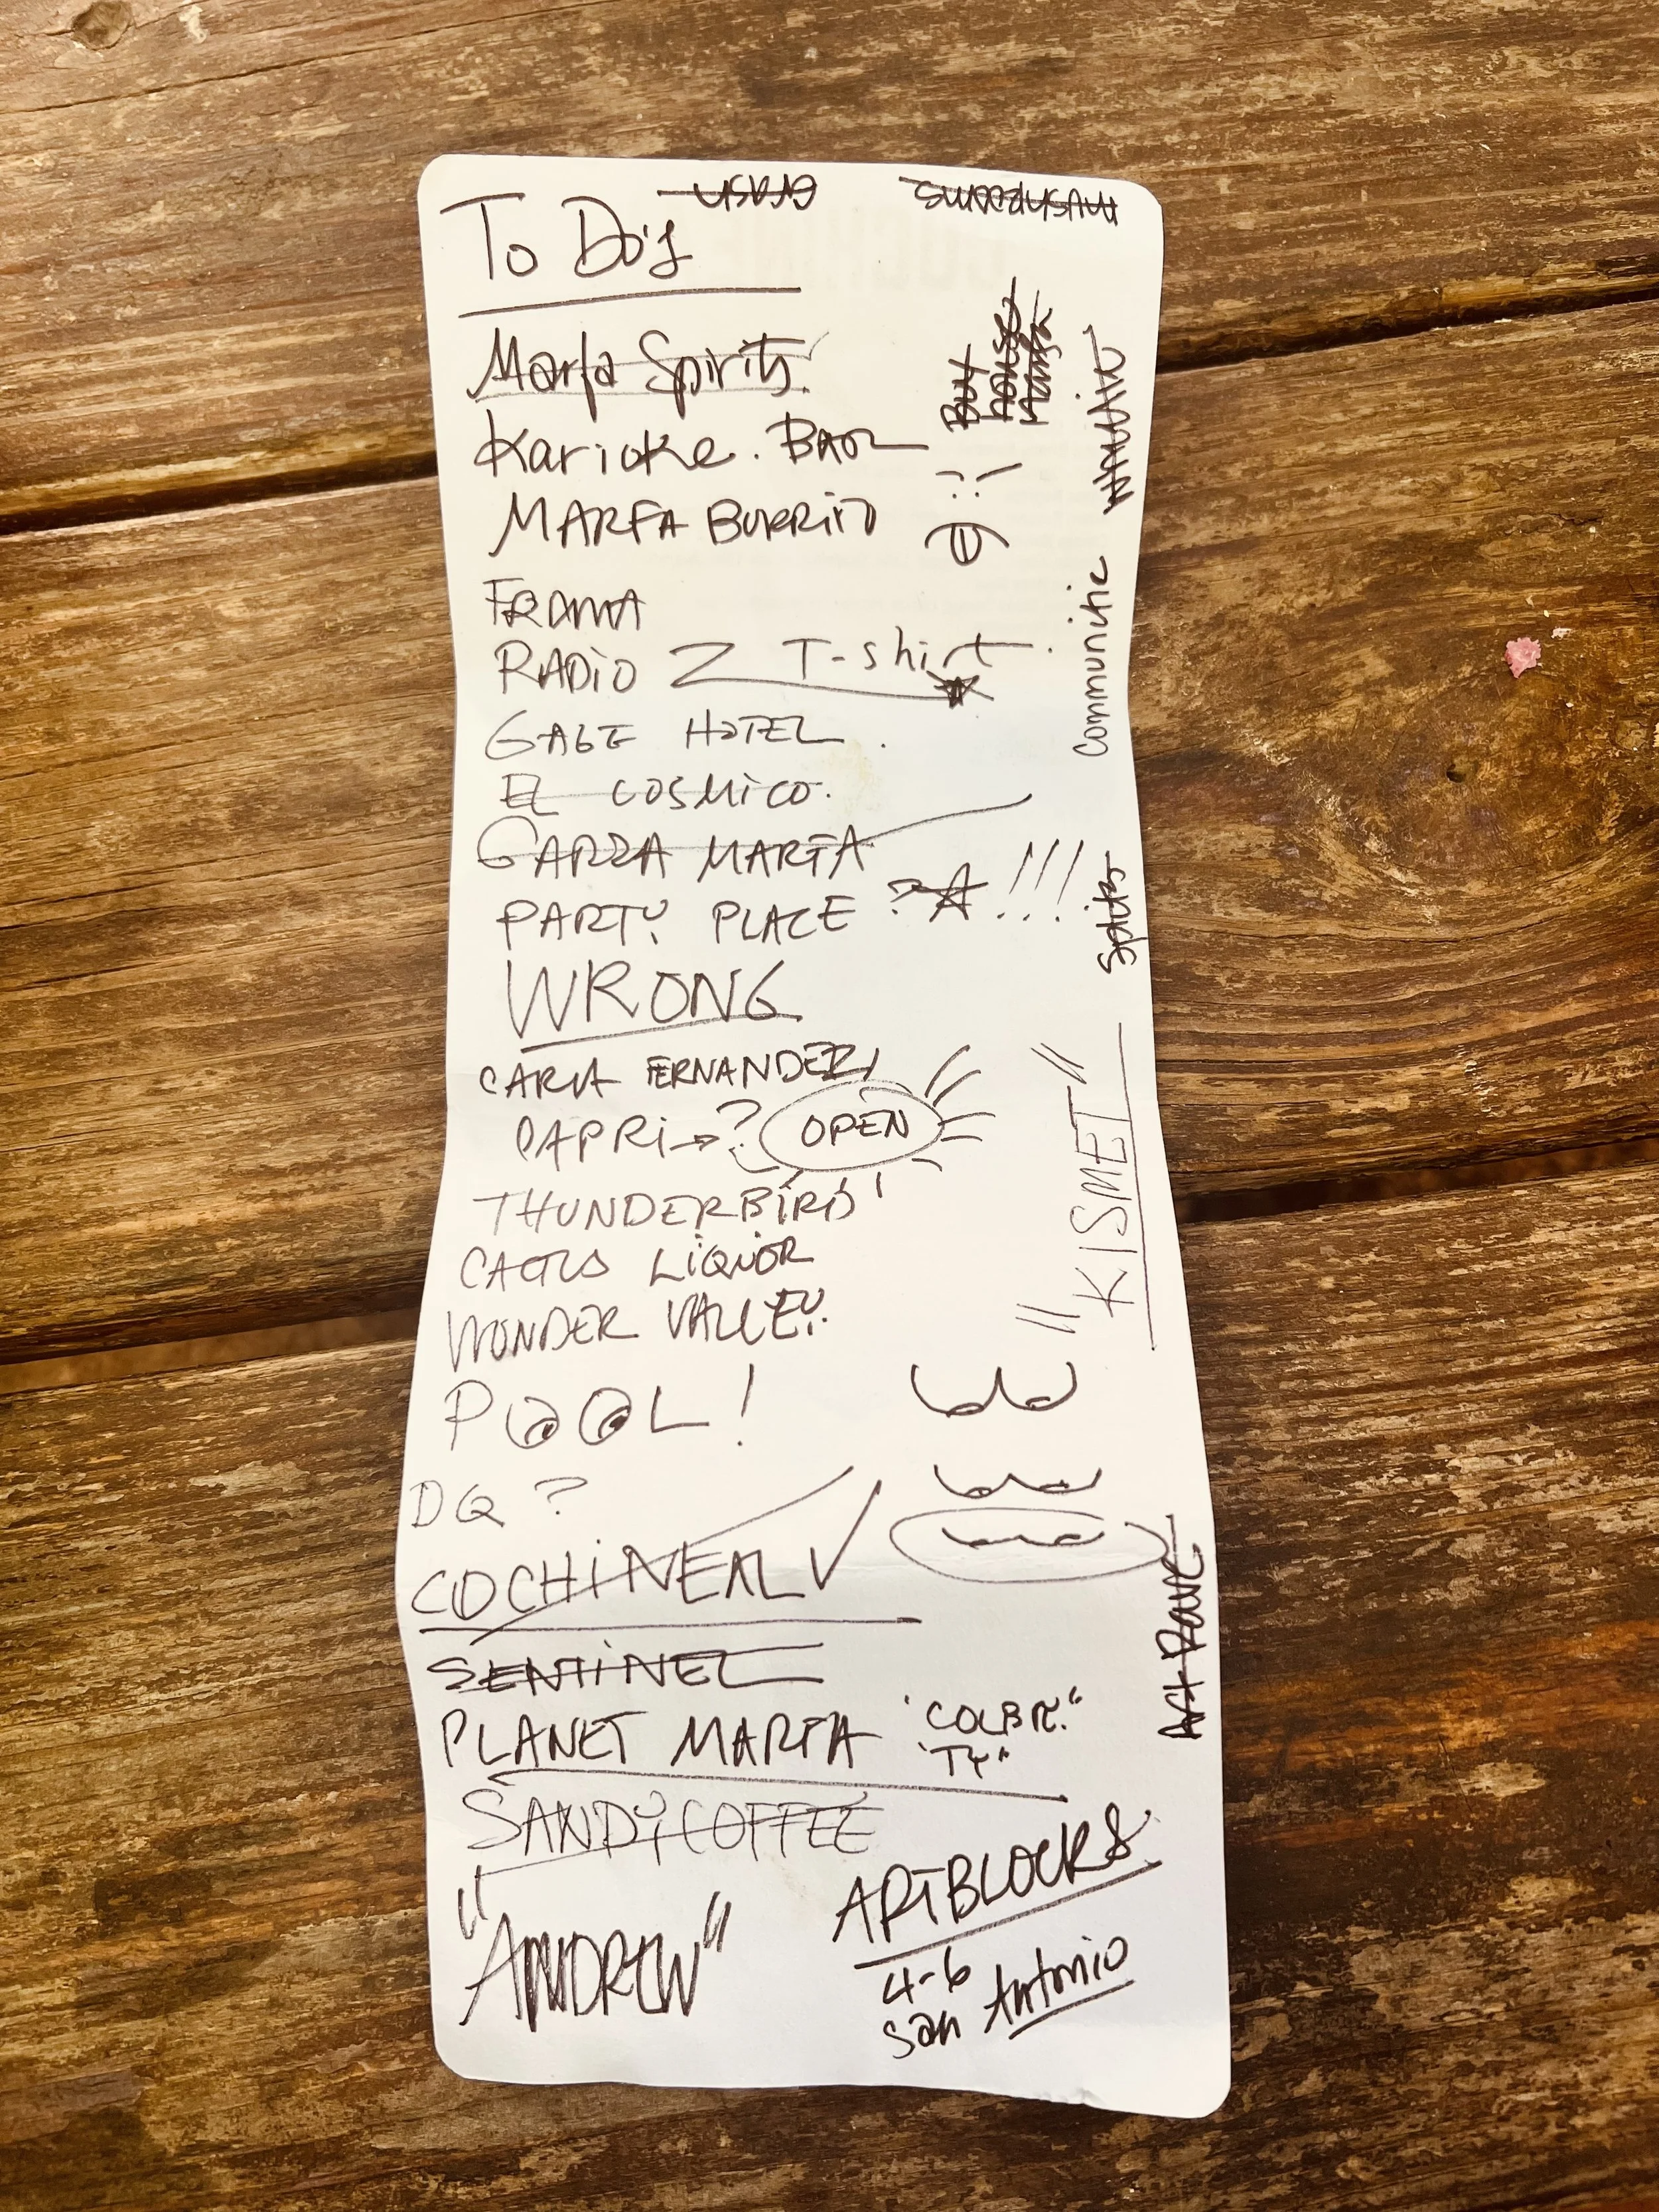 To Do's
Marfa Spirits.
Karioke.
MARFA BURRITO
FRAMA
RADIO T-shirt.
GAGE HOTEL.
EL COSMICO.
GARZA MARFA
PARTY PLACE ? !!!
WRONG
CARLA FERNANDEZ,
CAPRI → ? OPEN
THUNDERBIRD
CACTUS LIQUOR
WONDER VALLEY.
POOL!
DQ ?
COCHINEAL ✓
SENTINEL
PLANET MARFA
"TY"
SANDY COFFEE
"ANDREW"
ARTBLOCKS
4-6
San Antonio
MUSHROOMS
Buy
house
Marfa
Communitie
Spirits
"KISMET"